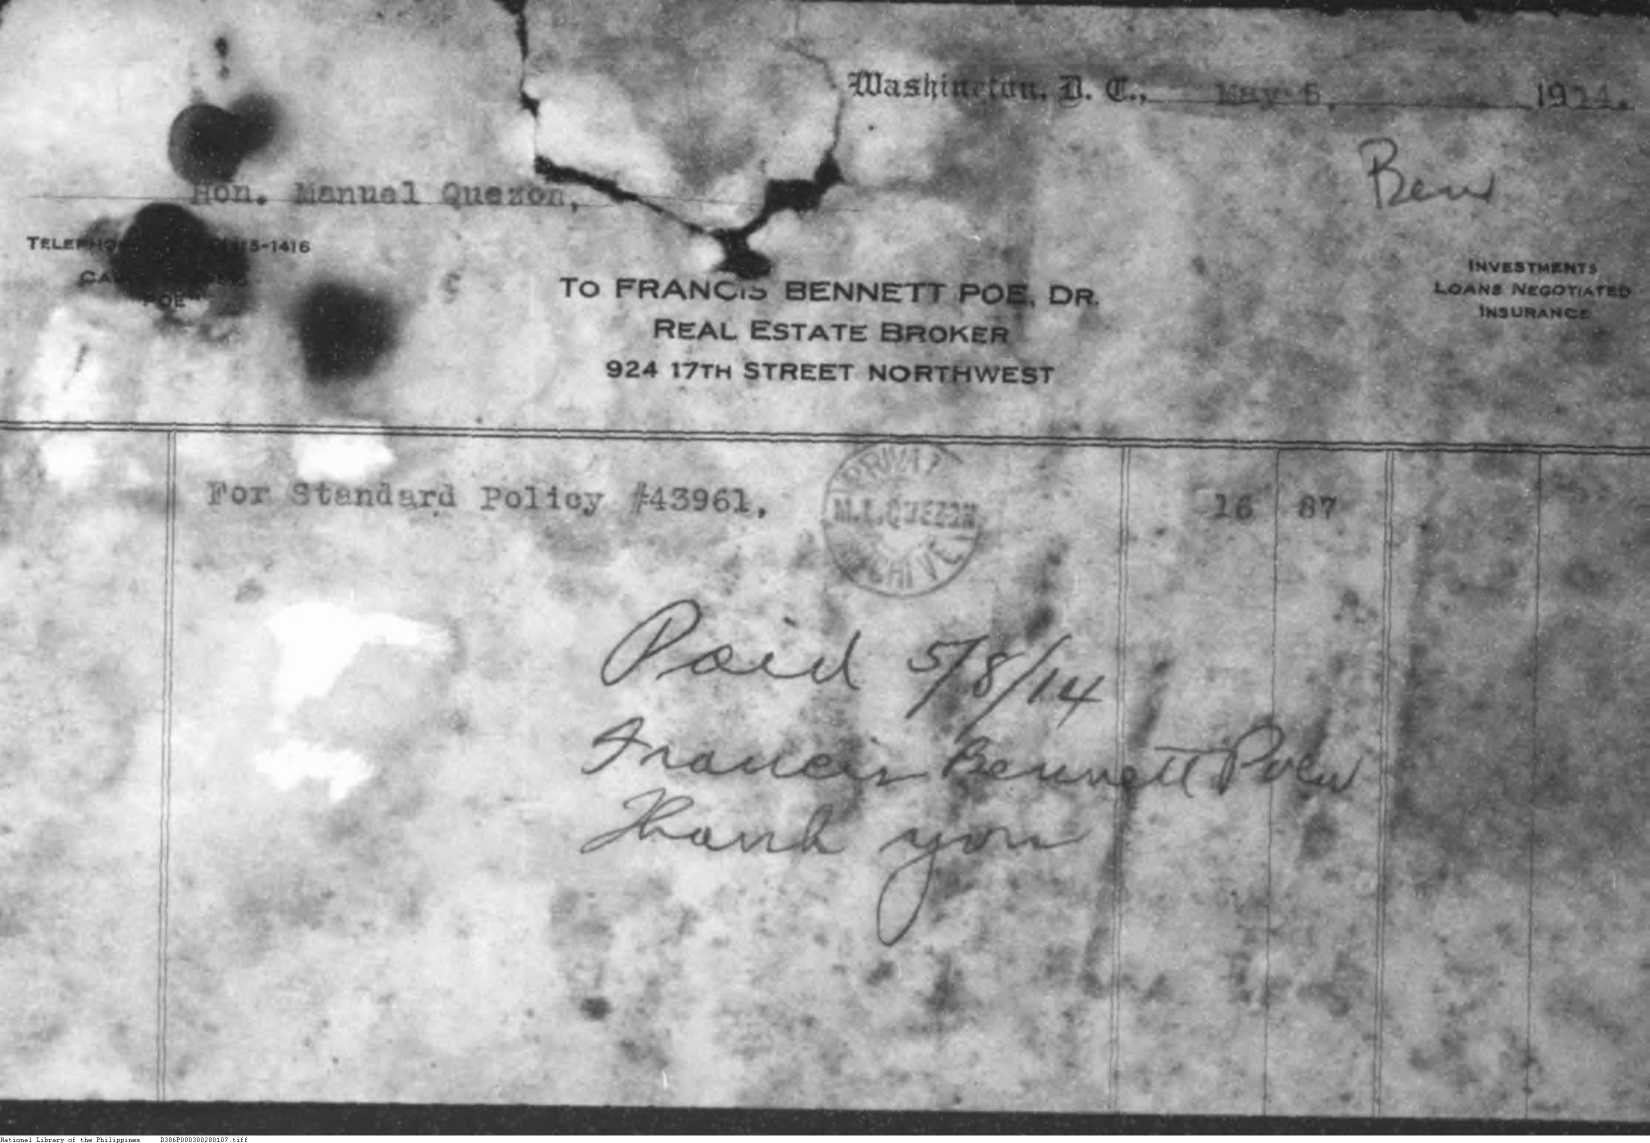 Washington, D. C., May 6, 1914.
Hon. Manuel Quezon,
TELEPHO 5-1416
CA
POE
TO FRANCIS BENNETT POE, DR.
REAL ESTATE BROKER
924 17TH STREET NORTHWEST
INVESTMENTS
LOANS NEGOTIATED
INSURANCE
For Standard Policy #43961, 16 87
PRIVAT
M.L.QUEZON
CHIVE
Paid 5/8/14
Francis Bennett Poe
Thank you
National Library of the Philippines D386P000300280107.tiff